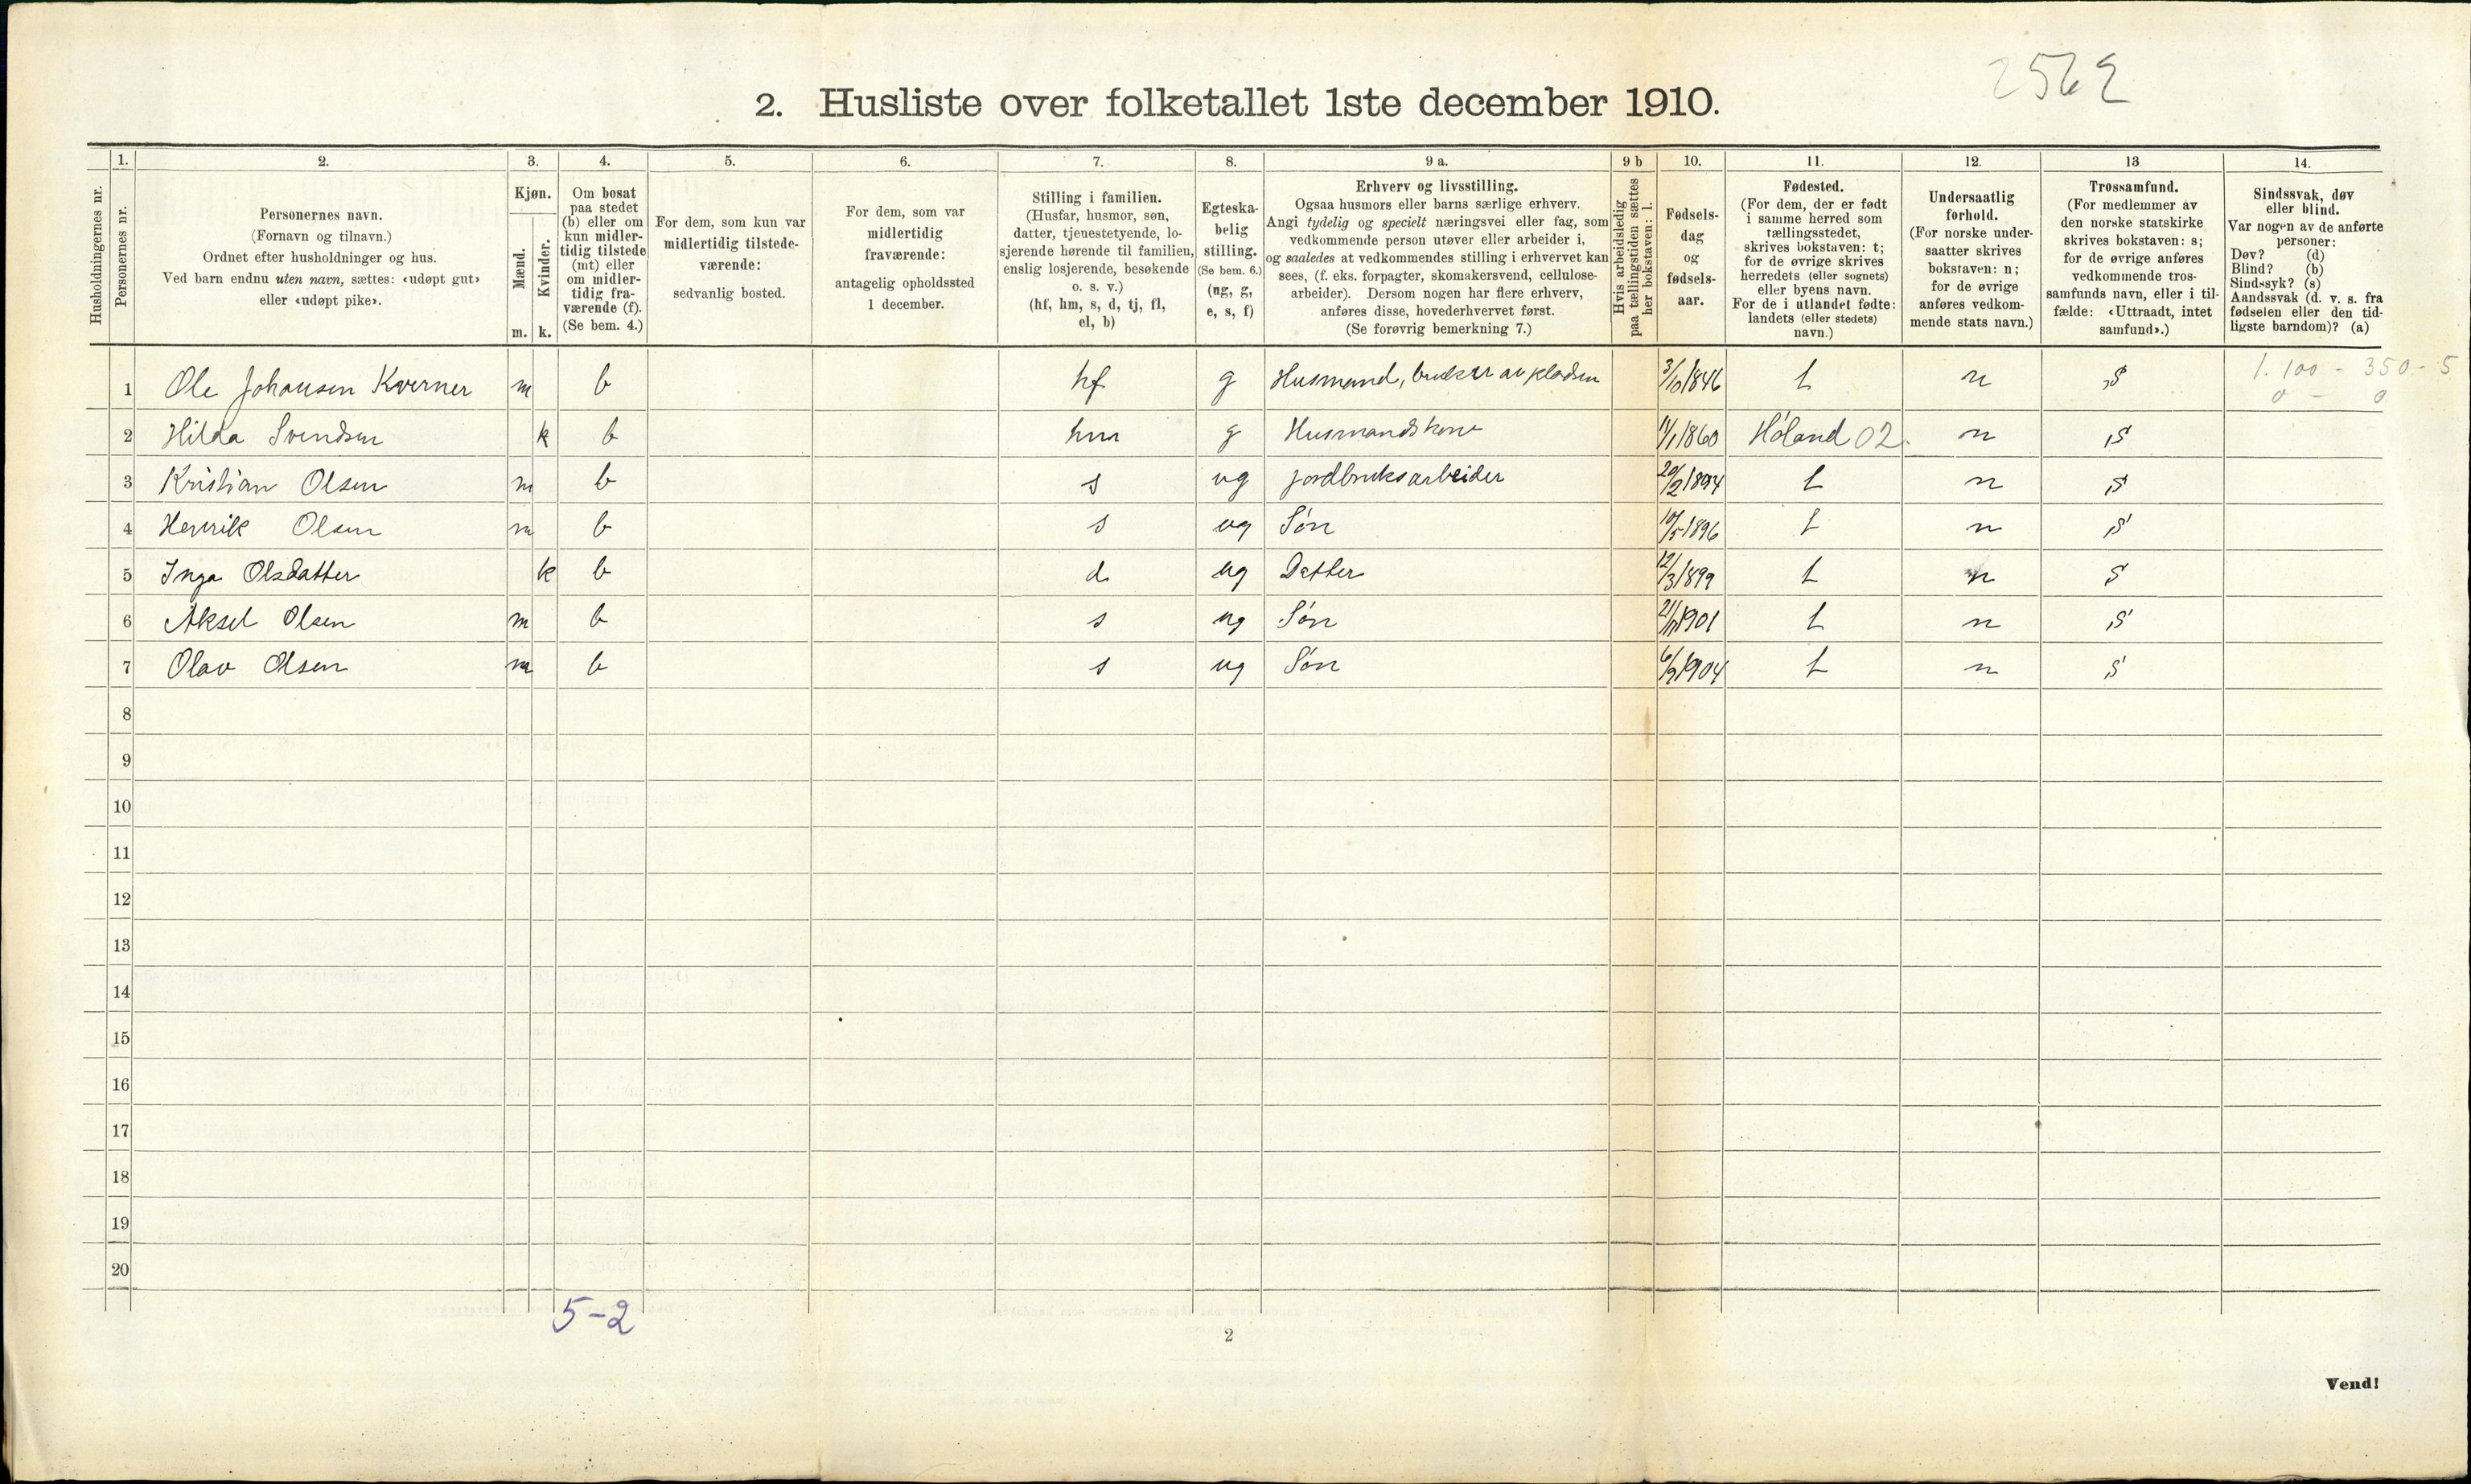 2562
2. Husliste over folketallet 1ste december 1910.
Husholdningernes nr.
1. Personernes nr.
2.
Personernes navn.
(Fornavn og tilnavn.)
Ordnet efter husholdninger og hus.
Ved barn endnu uten navn, sættes: «udøpt gut»
eller «udøpt pike».
3.
Kjøn.
Mænd.
m.
Kvinder.
k.
4.
Om bosat
paa stedet
(b) eller om
kun midler-
tidig tilstede
(mt) eller
om midler-
tidig fra-
værende (f).
(Se bem. 4.)
5.
For dem, som kun var
midlertidig tilstede-
værende:
sedvanlig bosted.
6.
For dem, som var
midlertidig
fraværende:
antagelig opholdssted
1 december.
7.
Stilling i familien.
(Husfar, husmor, søn,
datter, tjenestetyende, lo-
sjerende hørende til familien,
enslig losjerende, besøkende
o. s. v.)
(hf, hm, s, d, tj, fl,
el, b)
8.
Egteska-
belig
stilling.
(Se bem. 6.)
(ug, g,
e, s, f)
9 a.
Erhverv og livsstilling.
Ogsaa husmors eller barns særlige erhverv.
Angi tydelig og specielt næringsvei eller fag, som
vedkommende person utøver eller arbeider i,
og saaledes at vedkommendes stilling i erhvervet kan
sees, (f. eks. forpagter, skomakersvend, cellulose-
arbeider). Dersom nogen har flere erhverv,
anføres disse, hovederhvervet først.
(Se forøvrig bemerkning 7.)
9 b
Hvis arbeidsledig
paa tællingstiden sættes
her bokstaven: l.
10.
Fødsels-
dag
og
fødsels-
aar.
11.
Fødested.
(For dem, der er født
i samme herred som
tællingsstedet,
skrives bokstaven: t;
for de øvrige skrives
herredets (eller sognets)
eller byens navn.
For de i utlandet fødte:
landets (eller stedets)
navn.)
12.
Undersaatlig
forhold.
(For norske under-
saatter skrives
bokstaven: n;
for de øvrige
anføres vedkom-
mende stats navn.)
13
Trossamfund.
(For medlemmer av
den norske statskirke
skrives bokstaven: s;
for de øvrige anføres
vedkommende tros-
samfunds navn, eller i til-
fælde: «Uttraadt, intet
samfund».)
14.
Sindssvak, døv
eller blind.
Var nogen av de anførte
personer:
Døv? (d)
Blind? (b)
Sindssyk? (s)
Aandssvak (d. v. s. fra
fødselen eller den tid-
ligste barndom)? (a)
1 Ole Johansen Kverner m b hf g Husmand, bruker av pladsen 3/10 1846 t n s 1.100 - 350 - 5
0 - 0
2 Hilda Svendsen k b hm g Husmandskone 11/1 1860 Høland 02. n s
3 Kristian Olsen m b s ug jordbruksarbeider 20/2 1894 t n s
4 Henrik Olsen m b s ug Søn 10/5 1896 t n s
5 Inga Olsdatter k b d ug Datter 12/3 1899 t n s
6 Aksel Olsen m b s ug Søn 21/11 1901 t n s
7 Olav Olsen m b s ug Søn 6/9 1904 t n s
8
9
10
11
12
13
14
15
16
17
18
19
20
5-2
2
Vend!